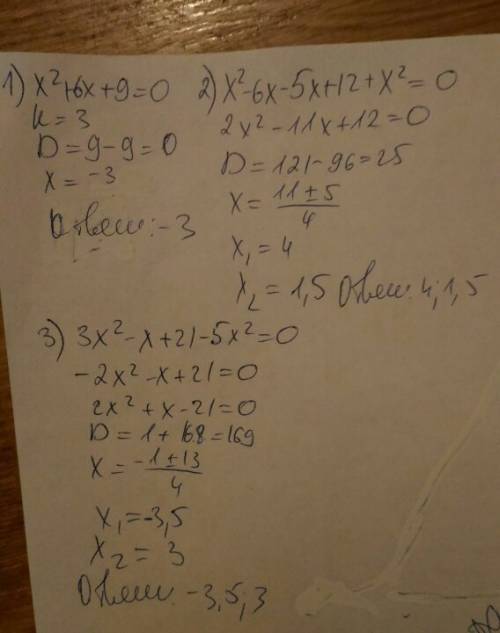 1) x²+6x+9=0
k=3
D=9-9=0
x=-3
Ответ: -3
2) x²-6x-5x+12+x²=0
2x²-11x+12=0
D=121-96=25
x=\frac{11±5}{4}
x₁=4
x₂=1,5 Ответ: 4; 1,5
3) 3x²-x+21-5x²=0
-2x²-x+21=0
2x²+x-21=0
D=1+168=169
x=\frac{-1±13}{4}
x₁=-3,5
x₂=3
Ответ: -3,5; 3